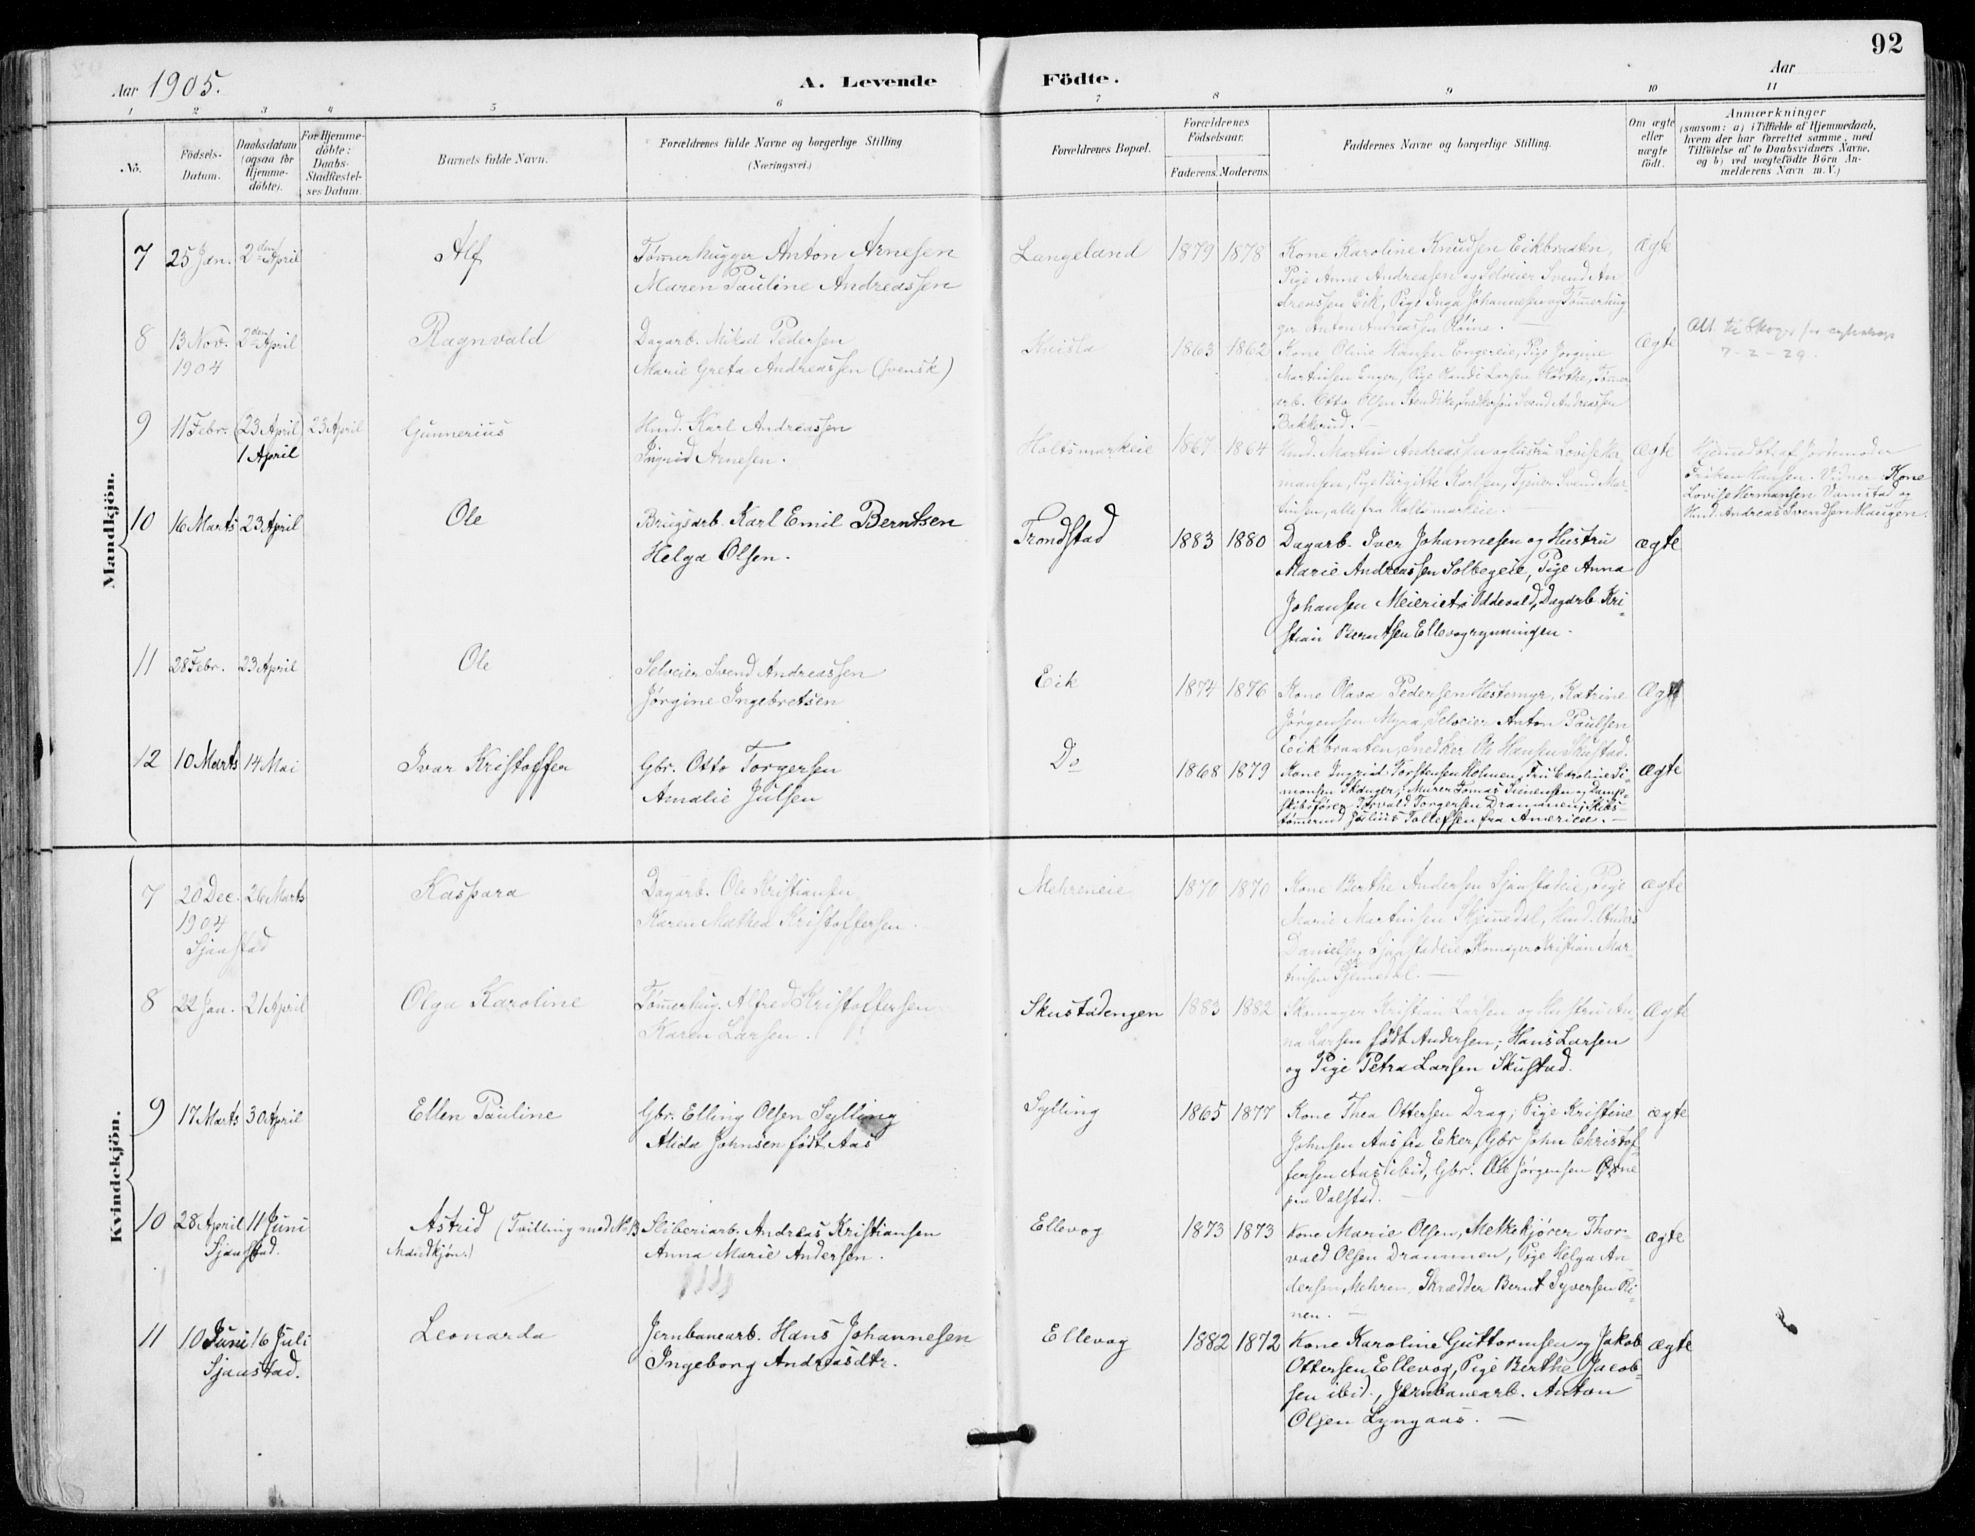 92
Aar 1905.
A. Levende Födte.
Aar
1 2 3 4 5 6 7 8 9 10 11
No.
Födsels-
Datum.
Daabsdatum
(ogsaa for
Hjemme-
döbte).
For Hjemme-
döbte:
Daabs-
Stadfæstel-
ses Datum.
Barnets fulde Navn.
Forældrenes fulde Navne og borgerlige Stilling
(Næringsvei.)
Forældrenes Bopæl.
Forældrenes
Födselsaar.
Faderens. Moderens.
Faddernes Navne og borgerlige Stilling.
Om ægte
eller
uægte
födt.
Anmærkninger
(saasom: a) i Tilfælde af Hjemmedaab,
hvem der har forrettet samme, med
Tilföielse af to Daabsvidners Navne,
og b) ved uægtefödte Börn An-
melderens Navn m. V.)
Mandkjön.
7 25 Jan. 2den April
Alf
Tømmerhugger Anton Arnesen
Maren Pauline Andreassen
Langeland
1879 1878
Kone Karoline Knudsen Eikbraaten,
Pige Anne Andreassen og Selveier Svend An-
dreassen Eik, Pige Inga Johannesen og Tømmerhug
ger Anton Andreassen
ægte
8 13 Nov. 2den April
1904
Ragnvald
Dagarb. Mikal Pedersen
Marie Greta Andreassen (Svensk)
1863 1862
Kone Oline Hansen Engereie, Pige Jørgine
Martinsen Enger, Pige Larsen Tømmer
arb. Otto Olsen Svend Andreassen
Bakkerud.
ægte
Att. til
7-2-29.
9 11 Febr. (23 April) 23 April
1 April
Gunnerius
Hmd. Karl Andreassen
Ingrid Arnesen.
Holtsmarkeie
1867 1864
Hmd. Martin Andreassen og Hustru Lovise Her
mansen, Pige Birgitte Karlsen, Tjener Svend Mar-
tinsen, alle fra Holtsmarkeie.
ægte
Hjemmedøbt af Jordemoder
Hansen. Vidner: Kone
Lovise Hermansen og
Hmd. Andreas Svendsen Haugen.
10 16 Marts 23 April
Ole
Brugsarb. Karl Emil Berntsen
Helga Olsen.
Trondstad
1883 1880
Dagarb. Iver Johannesen og Hustru
Marie Andreassen Solbegeie, Pige Anna
Johansen Meieriet i Oddevald, Dagarb. Kri-
stian Berntsen Ellevogrynningen.
ægte
11 28 Febr. 23 April
Ole
Selveier Svend Andreassen
Jørgine Ingebretsen
Eik
1874 1876
Kone Olava Pedersen Hestemyr, Katrine
Jørgensen Myra, Selveier Anton Paulsen
Eikbraaten, Snedker Ole Hansen Skustad.
Ægte
12 10 Marts 14 Mai
Ivar Kristoffer
Gbr. Otto Torgersen
Amalie Julsen
Do
1868 1879
Kone Ingrid Torstensen Holmen, Fru Caroline Si-
monsen Stanger, Murer Tomas Simensen og Damp-
skibsfører Torvald Torgersen Drammen, Skibs-
tømmermd Julius Tollefsen fra America.
ægte
Kvindekjön.
7 20 Dec. 26 Marts
1904
Sjaastad
Kaspara
Dagarb. Ole Kristiansen
Karen Mathea Kristoffersen.
Mehreneie
1870 1870
Kone Berthe Andersen Sjaastadeie, Pige
Marie Martinsen Hmd. Anders
Danielsen Sjaastadeie, Skomager Kristian Mar-
tinsen
ægte
8 22 Jan. 21 April
Olga Karoline
Tømmerhug. Alfred Kristoffersen
Karen Larsen.
Skustadengen
1883 1882
Skomager Kristian Larsen og Hustru An-
na Larsen født Andersen; Hans Larsen
og Pige Petra Larsen Skustad.
Ægte
9 17 Marts 30 April
Ellen Pauline
Gbr. Elling Olsen Sylling
Alida Johnsen født Aas
Sylling
1865 1877
Kone Thea Ottersen Drag; Pige Kristine
Johnsen Aas fra Eker, Gbr. John Christof-
fersen Aas ibid, Gbr. Ole Jørgensen Grøne
pen Valstad.
ægte
10 28 April 11 Juni
Sjaastad.
Astrid (Tvilling med No 13
Mandkjøn.)
Sliberiarb. Andreas Kristiansen
Anna Marie Andersen.
Ellevog
1873 1873
Kone Marie Olsen, Melkekjører Thor-
vald Olsen Drammen, Pige Helga An
dersen Mehren, Skrædder Bernt Syversen Ri-
nen.
ægte
11 10 Juni 16 Juli
Sjaastad.
Leonarda
Jernbanearb. Hans Johannesen
Ingeborg Andreasdtr.
Ellevog
1882 1872
Kone Karoline Guttormsen og Jakob
Ottersen Ellevog, Pige Berthe Jacob-
sen ibid., Jernbanearb. Anton
Olsen Lyngaas.
ægte